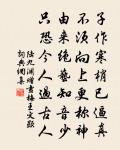 子作寒梢已逼真
不須向上更稱神
由來絶藝知音少
只恐今人過古人
陸九淵贈畫梅王文顯
詞典網集